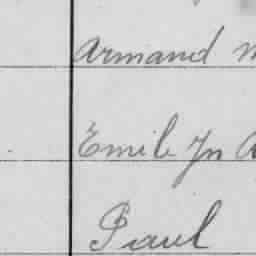 Armand
Emile Jn
Paul